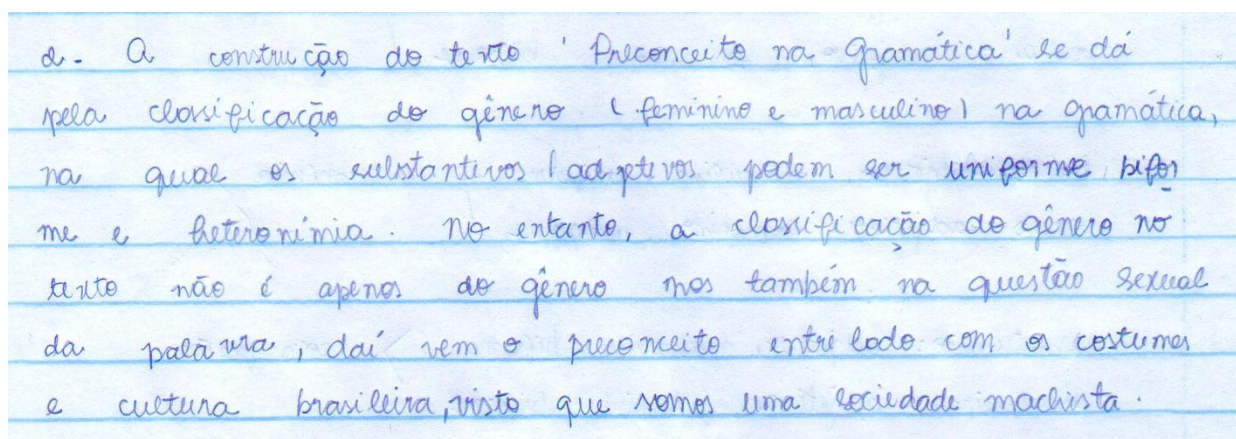 d- A construção do texto 'Preconceito na Gramática' se dá
pela classificação do gênero (feminino e masculino) na gramática,
na qual os substantivos/adptivos podem ser uniforme, bifor
me e heteronímia. No entanto, a classificação do gênero no
texto não é apenas do gênero mas também na questão sexual
da palavra, daí vem o preconceito entrelado com os costumes
e cultura brasileira, visto que somos uma sociedade machista.